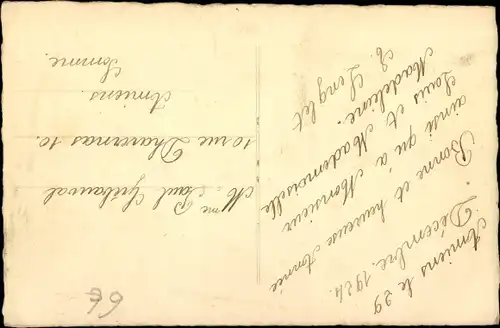 Amiens le 29
Décembre. 1924.
Bonne et heureuse Année
ainsi qu'à Monsieur
Louis et Mademoiselle
Madeleine.
L. Linglet
Mme Paul Guibauval
10 rue Dhavernas 10.
Amiens.
Somme.
6€